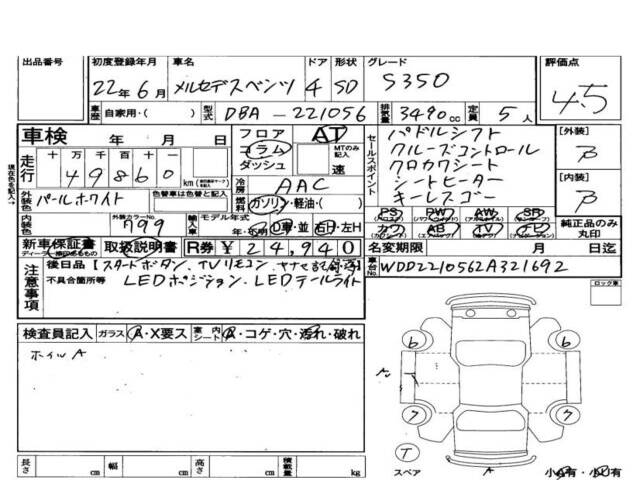 出品番号 初度登録年月 車名 ドア 形状 グレード 評価点
22年6月 メルセデスベンツ 4 SD S350 4.5
車歴 自家用・( ) 型式 DBA-221056 排気量 3490cc 定員 5人
車検 年 月 日 フロア AT セールスポイント パドルシフト [外装]
走行 十万千百十一 コラム MTのみ記入 クルーズコントロール B
49860km ダッシュ 速 クロカワシート [内装]
冷房 AAC シートヒーター B
外装色 パールホワイト 色替車は色替と記入 燃料 ガソリン・軽油・( ) キーレスゴー
内装色 外装カラーNo. 799 輸入車 モデル年式 年 D車・並 右H・左H PS PW AW SR
カワ AB TV ナビ 純正品のみ丸印
新車保証書 取扱説明書 R券 ¥ 24,940 名変期限 月 日迄
注意事項 後日品【スタートボタン、TVリモコン、
車台No. WDD2210562A321692
不具合箇所等 LEDポジション、LEDテールライト
ロック車
検査員記入 ガラス A・X要ス 車内シート A・コゲ・穴・汚れ・破れ
ホイルA
6 6
7 7
T
スペア A 小有・小有
長さ cm 幅 cm 高さ cm 積載量 kg
現在色を記入→